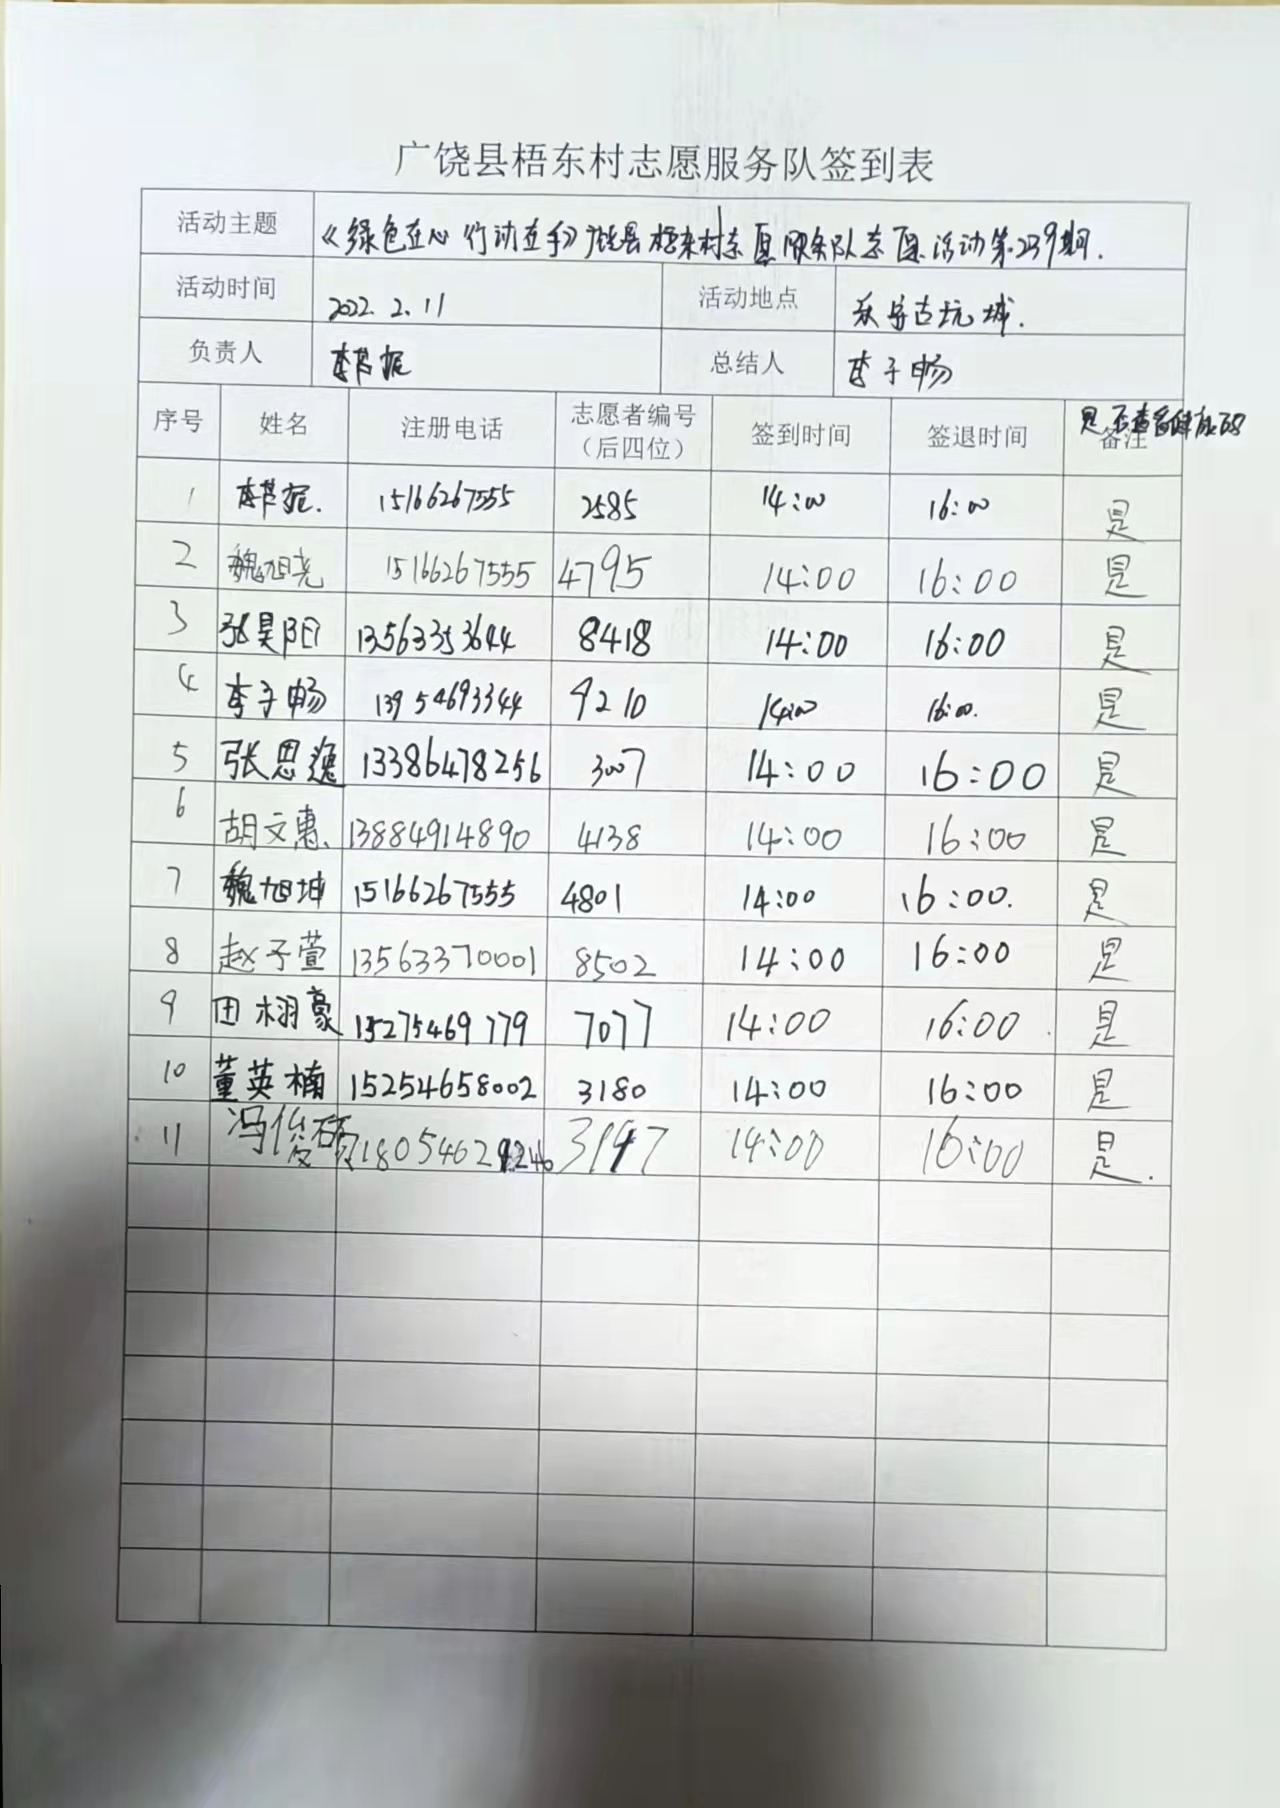 广饶县梧东村志愿服务队签到表
活动主题 《绿色在心 行动在手》广饶县梧东村志愿服务队志愿活动第239期.
活动时间 2022.2.11 活动地点 乐安古坑城.
负责人 总结人 李子畅
序号 姓名 注册电话 志愿者编号（后四位） 签到时间 签退时间 备注 是否查看健康码
1 15166267555 2585 14:00 16:00 是
2 魏旭尧 15166267555 4795 14:00 16:00 是
3 张昊阳 13563353644 8418 14:00 16:00 是
4 李子畅 13954693344 9210 14:00 16:00. 是
5 张思逸 13386478256 3007 14:00 16:00 是
6 胡文惠. 13884914890 4138 14:00 16:00 是
7 魏旭坤 15166267555 4801 14:00 16:00. 是
8 赵子萱 13563370001 8502 14:00 16:00 是
9 田栩豪 15275469779 7077 14:00 16:00 是
10 董英楠 15254658002 3180 14:00 16:00 是
11 冯俊硕 14:00 16:00 是.